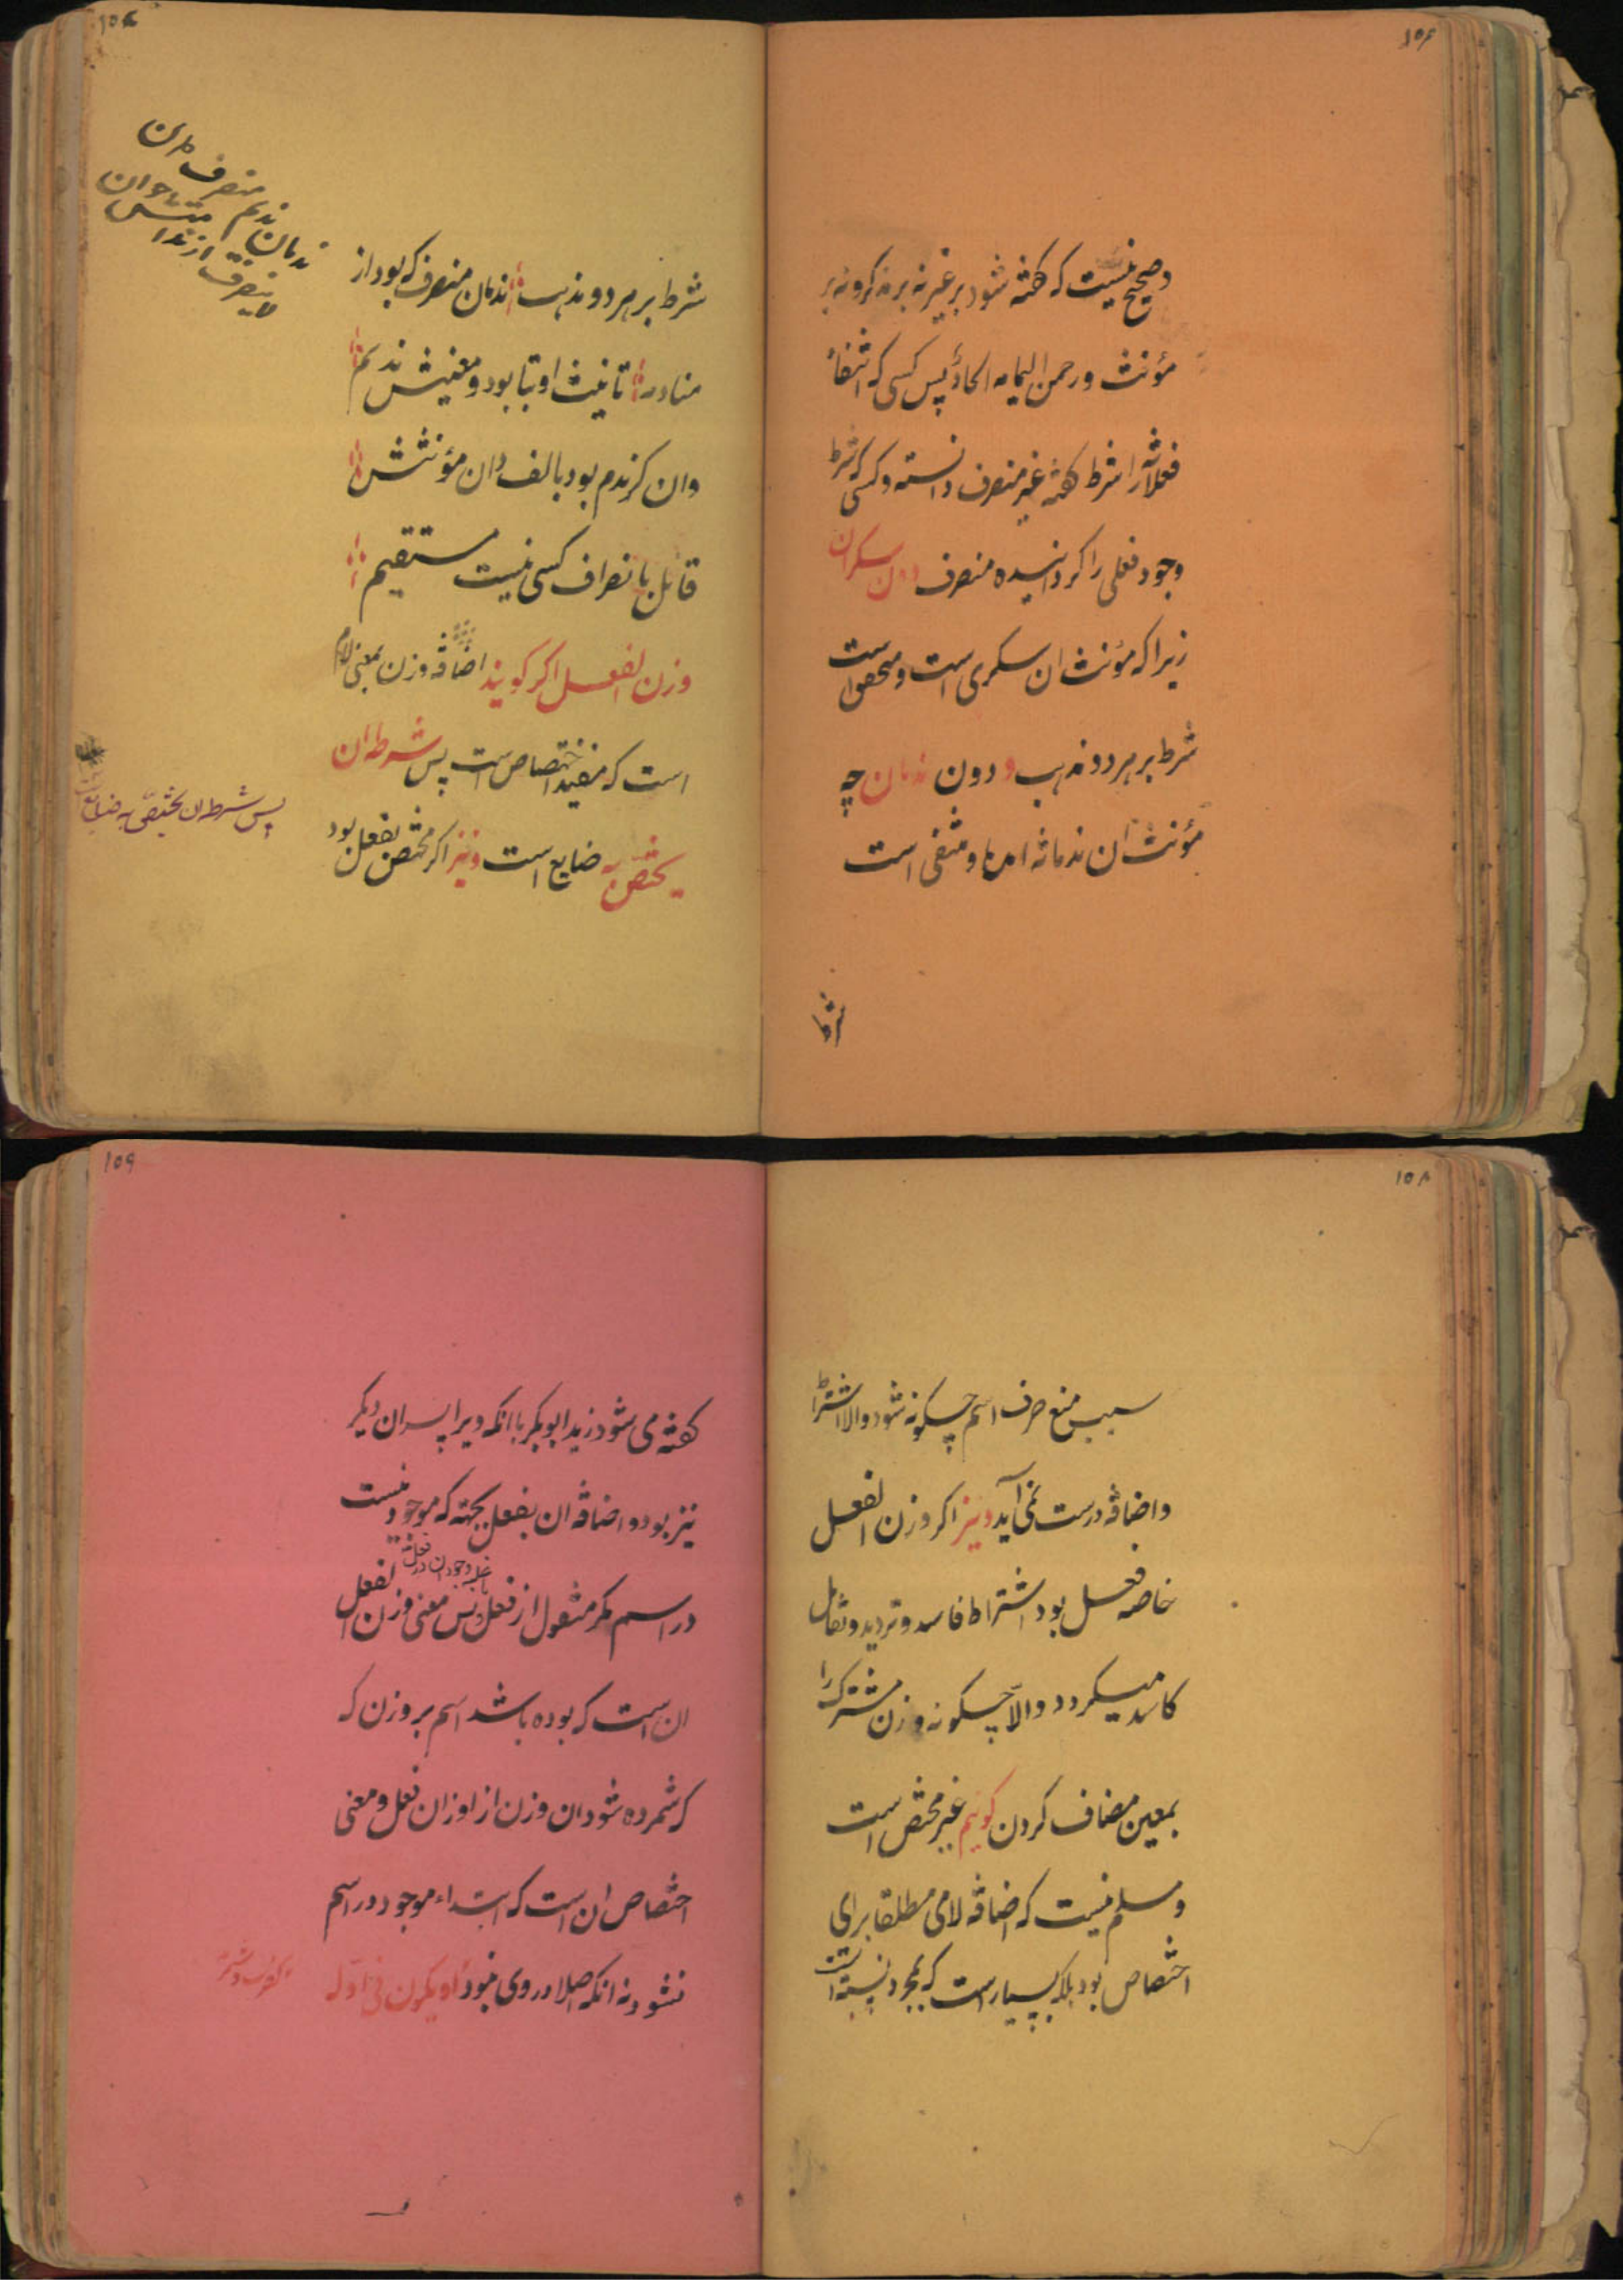 ١٥٦
و صحیح نیست که گفته شود بر غیر نه بر مذکر و نه بر
مؤنث و رحمن الیمامه الحاد پس کسی که انتفاء
فعلانة را شرط گفته غیر منصرف دانسته و کسی که شرط
وجود فعلی را گردانیده منصرف دون سکران
زیرا که مؤنث ان سکری است و متحقق است
شرط بر هر دو مذهب و دون ندمان چه
مؤنث ان ندمانه امده و منتفی است
شرط
١٥٧
شرط بر هر دو مذهب ندمان منصرف که بود از
منادمه تانیث او بتا بود و معنیش ندیم
وان کز ندم بود بالف دان مؤنثش
قائل بانصراف کسی نیست مستقیم
وزن الفعل اکر کویند اضافه وزن بمعنی لام
است که مفید اختصاص است پس شرط ان
یختص به ضایع است و نیز اکر مختص بفعل بود
ندمان ندیم منصرف
پس شرط ان یختص به ضایع
١٥٨
سبب منع صرف اسم چگونه شود و الا اشتراط
و اضافه درست نمی آید و نیز اکر وزن الفعل
خاصه فعل بود اشتراط فاسد و تردید و تقابل
کاسد میگردد و الّا چگونه وزن مشترک را
بمعین مضاف کردن کوئیم غیر مختص است
و مسلم نیست که اضافه لامی مطلقا برای
اختصاص بود بلکه بسیار است که بمجرد نسبة است
١٥٩
گفته می شود زید ابو بکر با انکه ویرا پسران دیگر
نیز بود و اضافه ان بفعل بجهته که موجود نیست
در اسم مکر منقول از فعل پس معنی وزن الفعل
ان است که بوده باشد اسم بر وزن که
که شمرده شود ان وزن از اوزان فعل و معنی
اختصاص ان است که ابتداء موجود در اسم
نشود نه انکه اصلا در وی نبود او یکون فی اوله